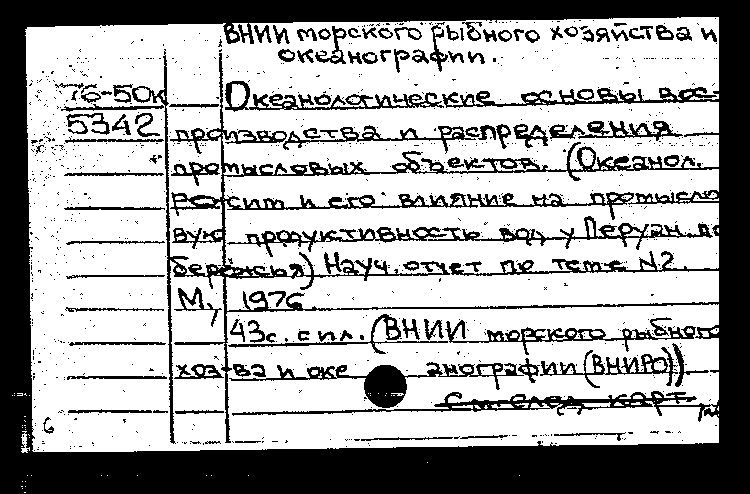 ВНИИ морского рыбного хозяйства и
океанографии.
76-50к Океанологические основы вос-
5342 производства и распределения
промысловых объектов. (Океанол.
режим и его влияние на промысло
вую продуктивность вод у Перуан. по
бережья) Науч. отчет по теме N2.
М., 1976.
43с. с ил. (ВНИИ морского рыбного
хоз-ва и океанографии (ВНИРО))
См. след. карт.
6